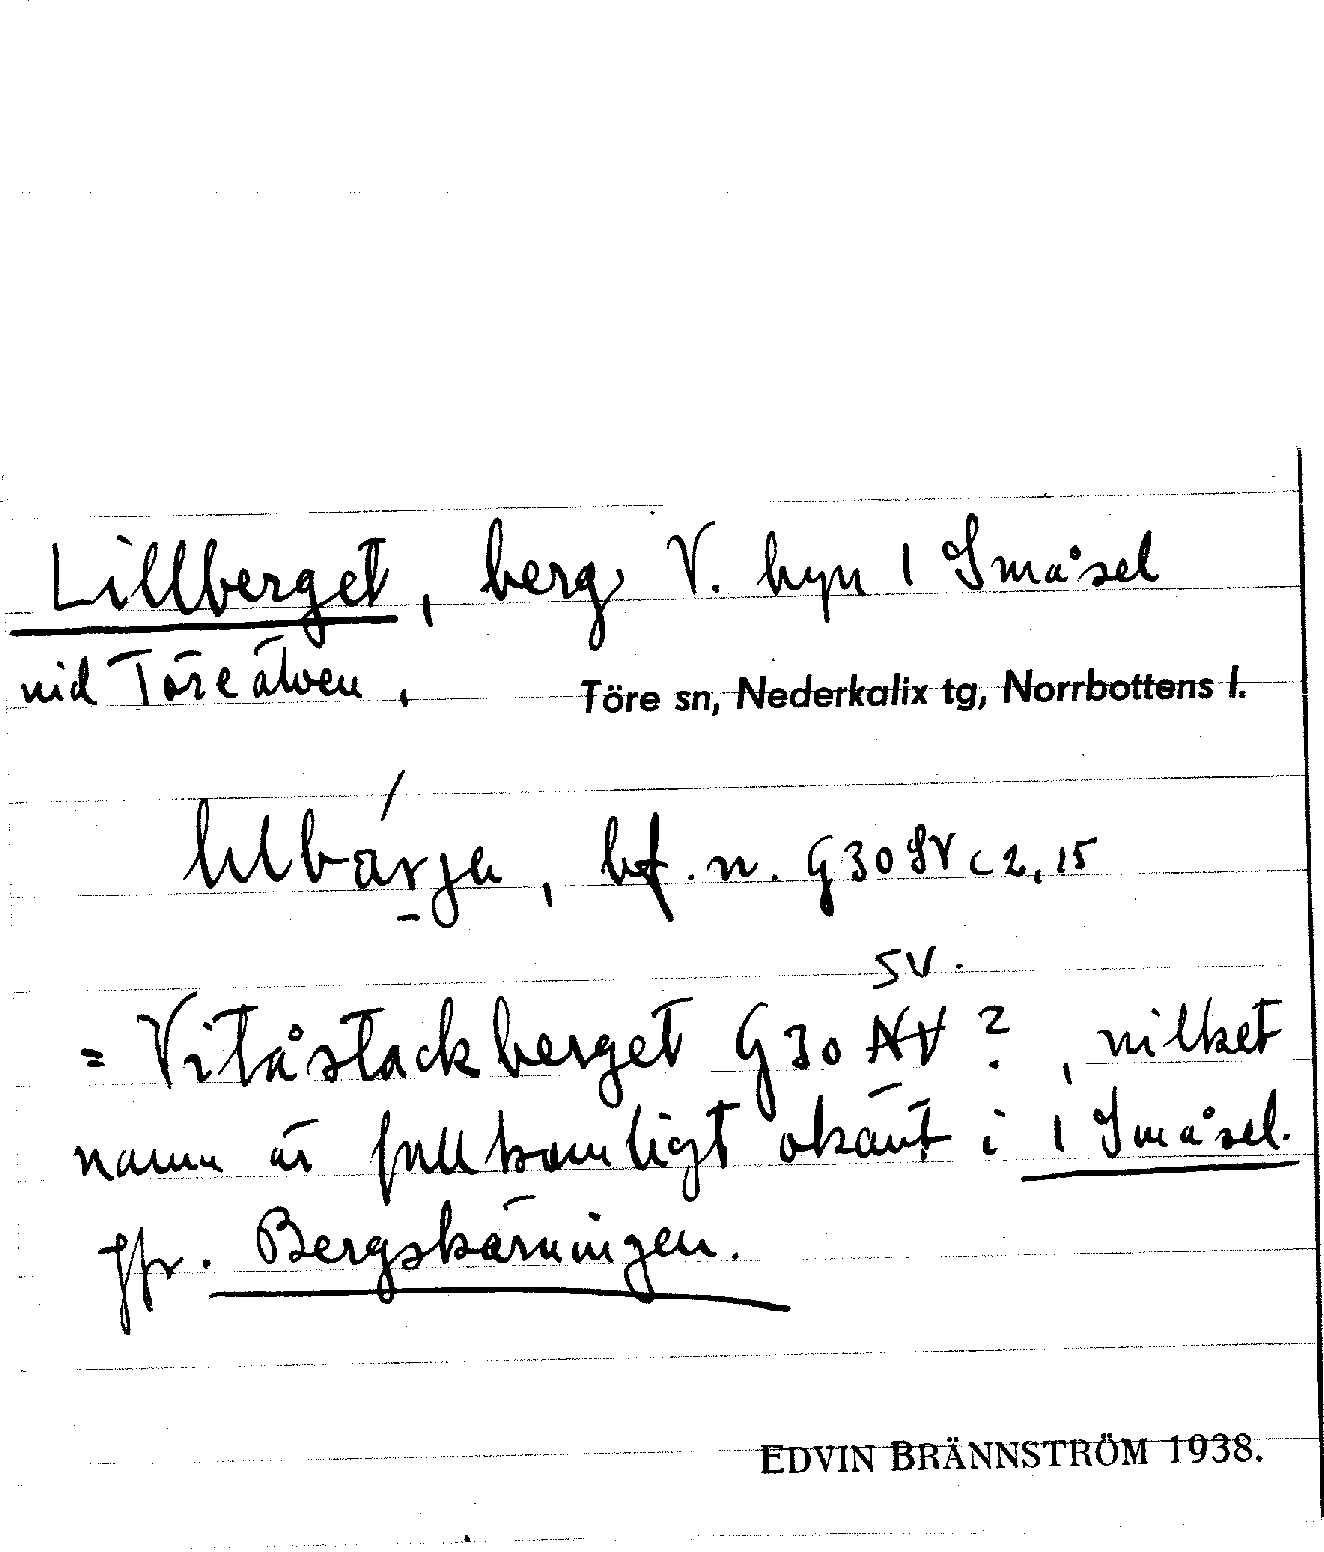 Lillberget, berg V. byn 1 Småsel
vid Töreälven. Töre sn, Nederkalix tg, Norrbottens l.
bf. n. G30 SV c 2,15
SV.
= Vitåstackberget G30 NV ?, vilket
namn är fullkomligt okänt i 1 Småsel.
Jfr. Bergskärningen.
EDVIN BRÄNNSTRÖM 1938.